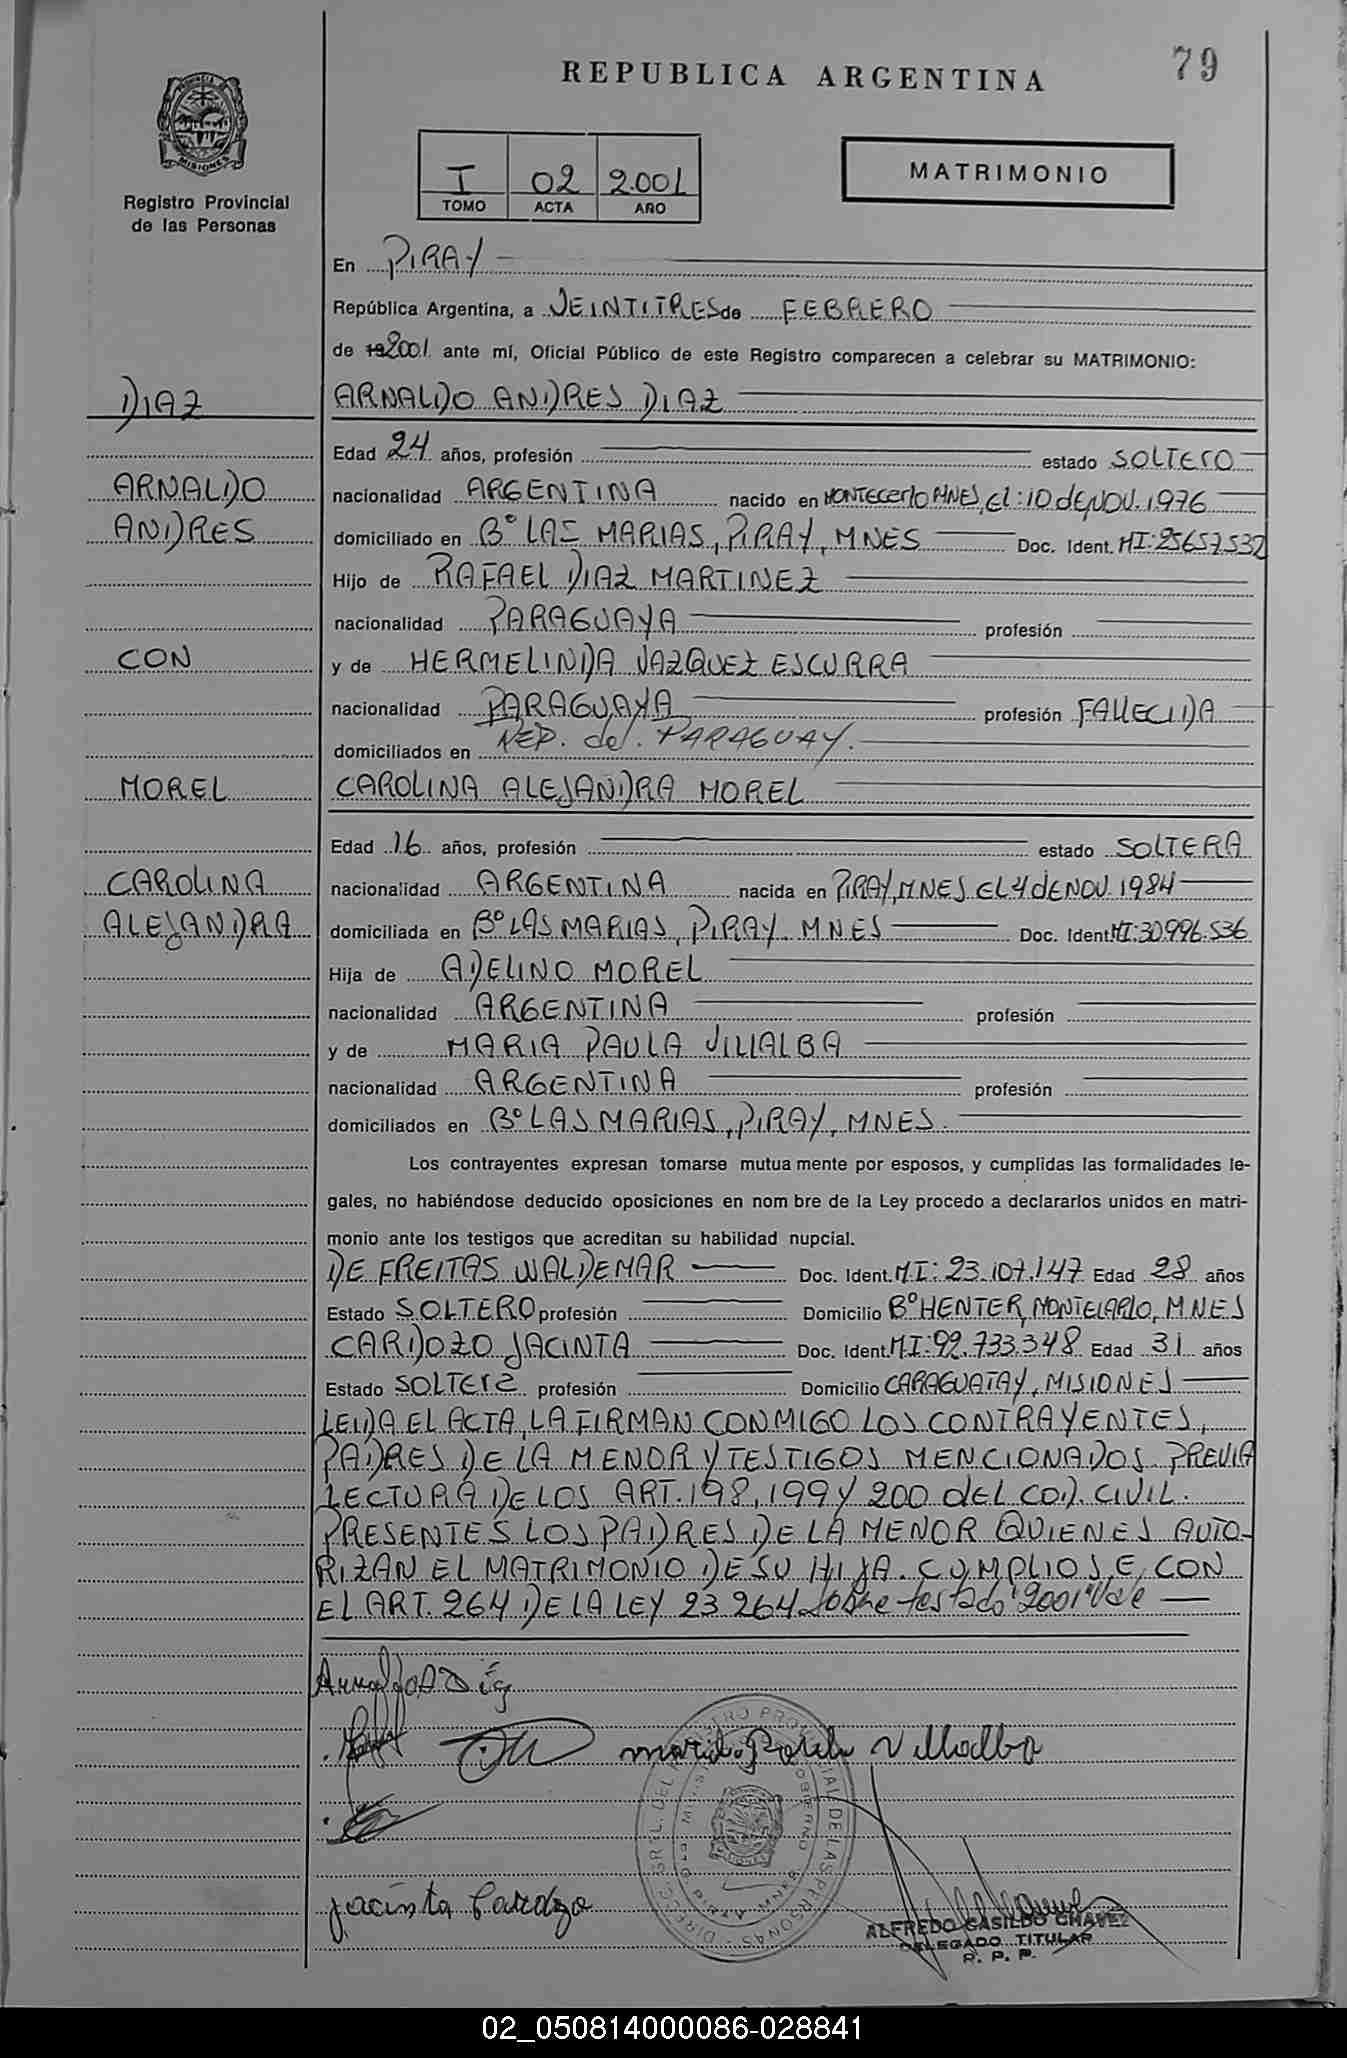 79
REPUBLICA ARGENTINA
PROVINCIA DE
MISIONES
Registro Provincial
de las Personas
I 02 2.001
TOMO ACTA AÑO
MATRIMONIO
En PIRAY
República Argentina, a VEINTITRES de FEBRERO
de 19 2001 ante mí, Oficial Público de este Registro comparecen a celebrar su MATRIMONIO:
DIAZ
ARNALDO ANDRES DIAZ
Edad 24 años, profesión estado SOLTERO
ARNALDO
nacionalidad ARGENTINA nacido en MONTECARLO MNES, EL: 10 de NOV. 1976
ANDRES
domiciliado en Bº LAS MARIAS, PIRAY, MNES Doc. Ident. MI: 25657532
Hijo de RAFAEL DIAZ MARTINEZ
nacionalidad PARAGUAYA profesión
CON
y de HERMELINDA VAZQUEZ ESCURRA
nacionalidad PARAGUAYA profesión FALLECIDA
domiciliados en REP. del. PARAGUAY.
MOREL
CAROLINA ALEJANDRA MOREL
Edad 16 años, profesión estado SOLTERA
CAROLINA
nacionalidad ARGENTINA nacida en PIRAY, MNES EL 4 de NOV. 1984
ALEJANDRA
domiciliada en Bº LAS MARIAS, PIRAY, MNES Doc. Ident. MI: 30.996.536
Hija de ADELINO MOREL
nacionalidad ARGENTINA profesión
y de MARIA PAULA VILLALBA
nacionalidad ARGENTINA profesión
domiciliados en Bº LAS MARIAS, PIRAY, MNES.
Los contrayentes expresan tomarse mutua mente por esposos, y cumplidas las formalidades le-
gales, no habiéndose deducido oposiciones en nom bre de la Ley procedo a declararlos unidos en matri-
monio ante los testigos que acreditan su habilidad nupcial.
DE FREITAS WALDEMAR Doc. Ident. MI: 23.107.147 Edad 28 años
Estado SOLTERO profesión Domicilio Bº HENTER, MONTECARLO, MNES
CARDOZO JACINTA Doc. Ident. MI: 92.733.348 Edad 31 años
Estado SOLTERA profesión Domicilio CARAGUATAY, MISIONES
LEIDA EL ACTA, LA FIRMAN CONMIGO LOS CONTRAYENTES,
PADRES DE LA MENOR Y TESTIGOS MENCIONADOS. PREVIA
LECTURA DE LOS ART. 198, 199 Y 200 DEL COD. CIVIL.
PRESENTES LOS PADRES DE LA MENOR QUIENES AUTO-
RIZAN EL MATRIMONIO DE SU HIJA. CUMPLIOSE CON
EL ART. 264 DE LA LEY 23.264 Sobre testado "2001" Vale
Arnaldo A Diaz
maria Paula Villalba
Jacinta Cardozo
ALFREDO CASILDO CHAVEZ
DELEGADO TITULAR
R. P. P.
02_050814000086-028841